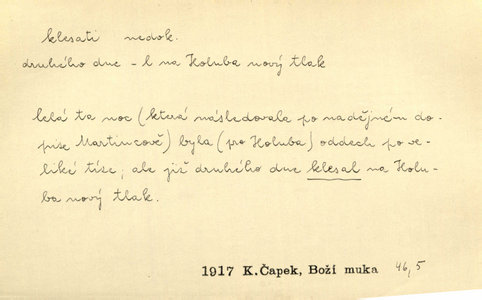 klesati nedok.
druhého dne – l na Holuba nový tlak
Celá ta noc (která následovala po nadějném do-
pise Martincově) byla (pro Holuba) oddech po ve-
liké tíse; ale již druhého dne klesal na Holu-
ba nový tlak.
1917 K.Čapek, Boží muka 46,5